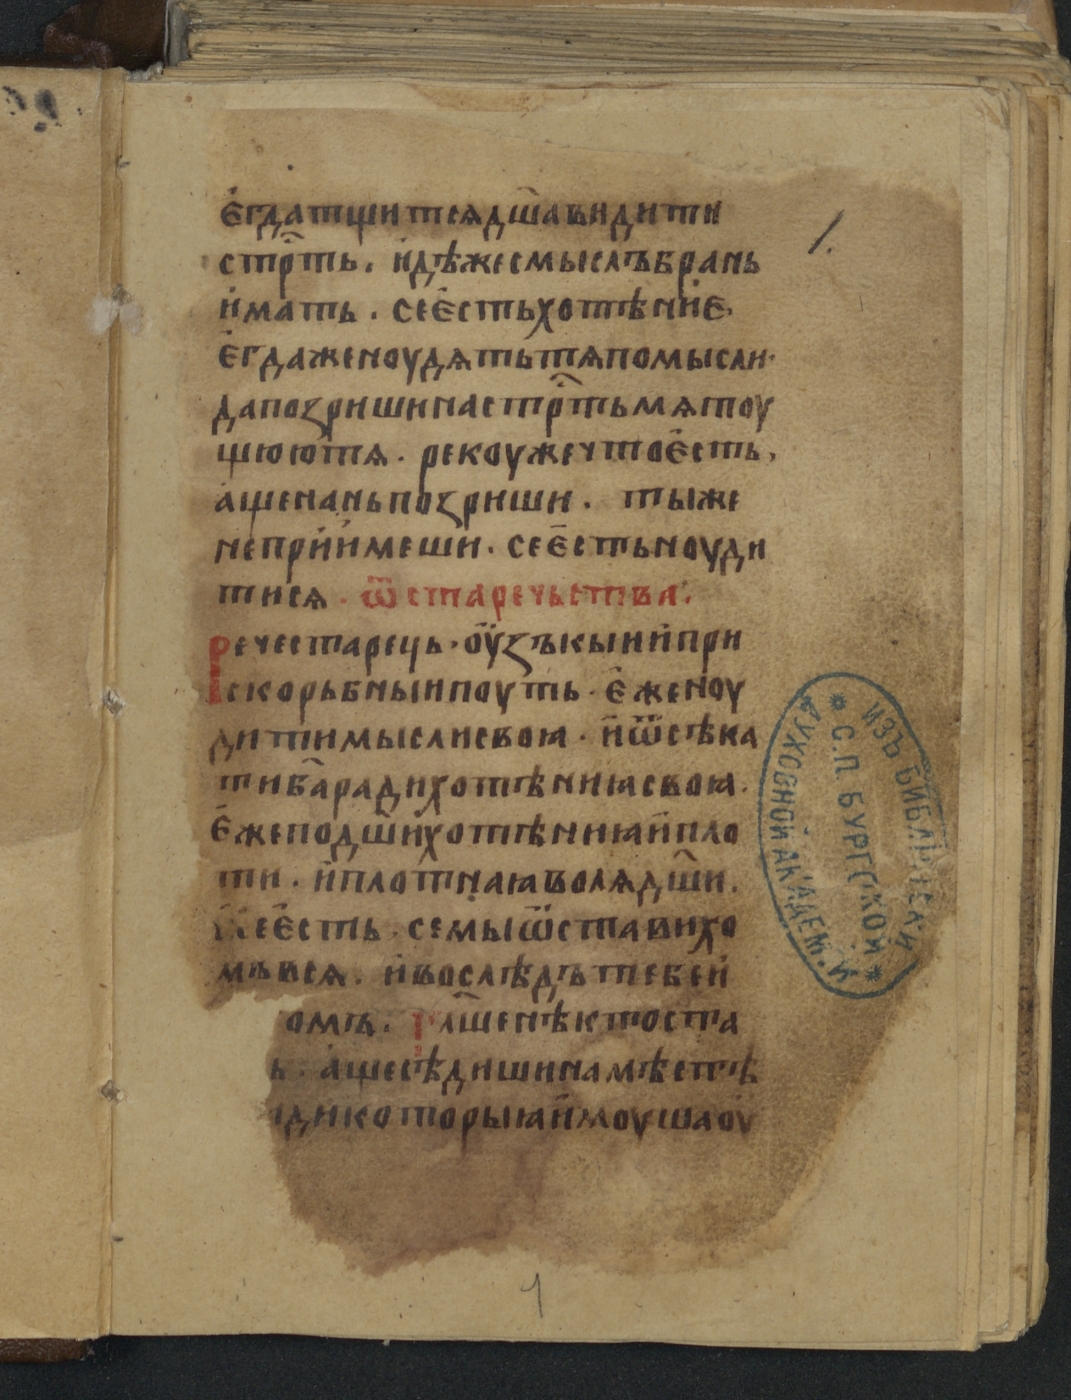 е҆гдатщитсѧдш҃авидити
стрⷭ҇ть. идѣжесмыслъбрань
имать. сеє҆стьхотѣниє
е҆гдаженоудѧтьтѧпомысли·
дапозришинастрⷭ҇тьмѧтоу
щюютѧ. рекоужечтоє҆сть,
ащенаньпозриши. тыже
неприимеши. сеє҆стьноуди
тисѧ. ѿстаречьства.
речестарець. оузъкыиипри
скорьбныипоуть. е҆женоу
дитимыслисвоꙗ. иѿсѣка
тиб҃арадихотѣниꙗсвоꙗ.
е҆жеподш҃ихотѣниꙗипло
ти. иплотнаꙗволѧдш҃и.
сеє҆сть. семыѿставихо
мъвсѧ. ивослѣдътебеи
омъ. р ащенѣктоста
ь. ащесѣдишинамѣстѣ
дикоторыꙗимоушаоу
1.
ИЗЪ БИБЛІОТЕКИ
* С.П. БУРГСКОЙ *
ДУХОВНОЙ АКАДЕМІИ
1